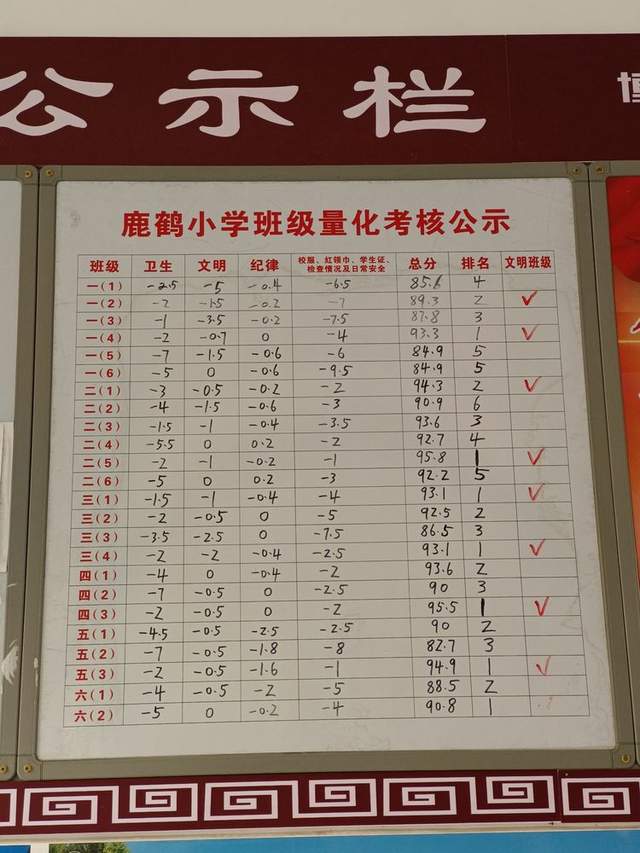 公示栏
博
鹿鹤小学班级量化考核公示
班级 卫生 文明 纪律 校服、红领巾、学生证、检查情况及日常安全 总分 排名 文明班级
一(1) -2.5 -5 -0.4 -6.5 85.6 4
一(2) -2 -1.5 -0.2 -7 89.3 2 ✓
一(3) -1 -3.5 -0.2 -7.5 87.8 3
一(4) -2 -0.7 0 -4 93.3 1 ✓
一(5) -7 -1.5 -0.6 -6 84.9 5
一(6) -5 0 -0.6 -9.5 84.9 5
二(1) -3 -0.5 -0.2 -2 94.3 2 ✓
二(2) -4 -1.5 -0.6 -3 90.9 6
二(3) -1.5 -1 -0.4 -3.5 93.6 3
二(4) -5.5 0 0.2 -2 92.7 4
二(5) -2 -1 -0.2 -1 95.8 1 ✓
二(6) -5 0 0.2 -3 92.2 5
三(1) -1.5 -1 -0.4 -4 93.1 1 ✓
三(2) -2 -0.5 0 -5 92.5 2
三(3) -3.5 -2.5 0 -7.5 86.5 3
三(4) -2 -2 -0.4 -2.5 93.1 1 ✓
四(1) -4 0 -0.4 -2 93.6 2
四(2) -7 -0.5 0 -2.5 90 3
四(3) -2 -0.5 0 -2 95.5 1 ✓
五(1) -4.5 -0.5 -2.5 -2.5 90 2
五(2) -7 -0.5 -1.8 -8 82.7 3
五(3) -2 -0.5 -1.6 -1 94.9 1 ✓
六(1) -4 -0.5 -2 -5 88.5 2
六(2) -5 0 -0.2 -4 90.8 1